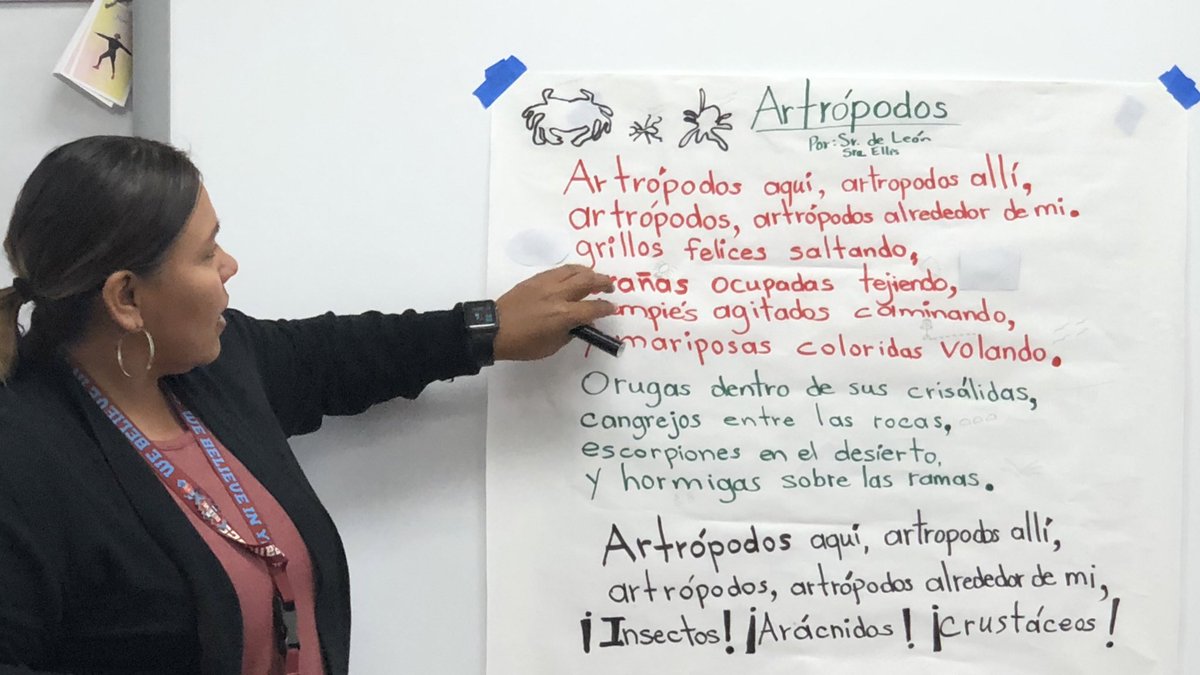 Artrópodos
Por: Sr. de León
Sra. Elles
Artrópodos aquí, artropodos allí,
artrópodos, artrópodos alrededor de mi.
grillos felices saltando,
ocupadas tejiendo,
agitados caminando,
mariposas coloridas volando.
Orugas dentro de sus crisálidas,
cangrejos entre las rocas,
escorpiones en el desierto,
y hormigas sobre las ramas.
Artrópodos aquí, artropodos allí,
artrópodos, artrópodos alrededor de mi,
¡Insectos! ¡Arácnidos! ¡crustáceos!
WE BELIEVE IN
WE BELIEVE